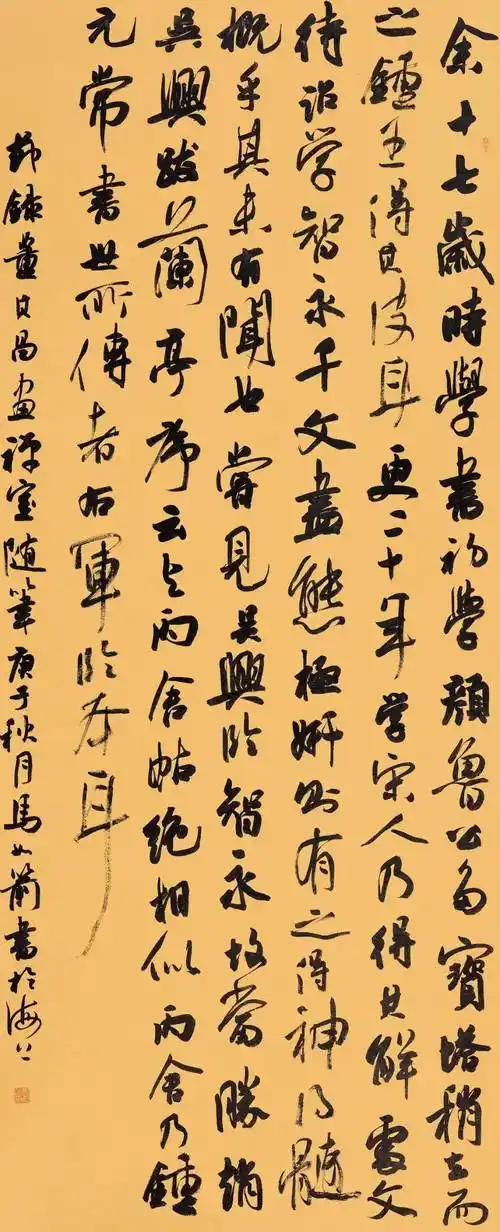 余十七歲時學書初學顔魯公多寶塔稍去而
之鍾王得其皮耳更二十年学宋人乃得其解處文
待詔学智永千文盡態極妍則有之得神得髓
概乎其未有聞也嘗見吳興臨智永故當勝趙
吳興跋蘭亭序云与丙舍帖絶相似丙舍乃鍾
元常書世所傳者右軍臨本耳
節録董其昌畫禅室随筆庚子秋月馬如書於海上